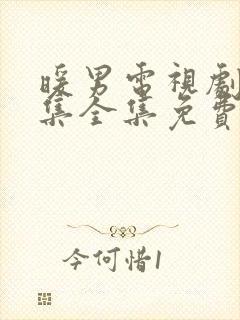 暖男電視劇
集全集免費
今何惜1